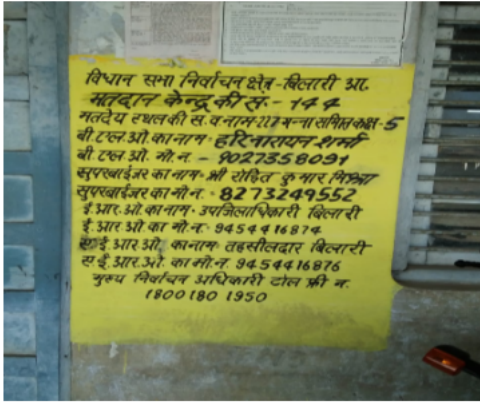 विधान सभा निर्वाचन क्षेत्र - बिलारी
मतदान केन्द्र की सं.- 144
मतदेय स्थल की स. व नाम- गन्ना समिति कक्ष- 5
बी.एल.ओ. का नाम- हरिनारायन शर्मा
बी.एल.ओ. मो.न. - 9027358091
सुपरबाईजर का नाम- श्री रोहित कुमार मिश्रा
सुपरबाईजर का मो.न. - 8273249552
ई.आर.ओ. का नाम- उपजिलाधिकारी बिलारी
ई.आर.ओ. का मो.न.- 9454416874
ए.ई.आर.ओ. का नाम- तहसीलदार बिलारी
ए.ई.आर.ओ. का मो.न. 9454416876
मुख्य निर्वाचन अधिकारी टोल फ्री न.
1800 180 1950